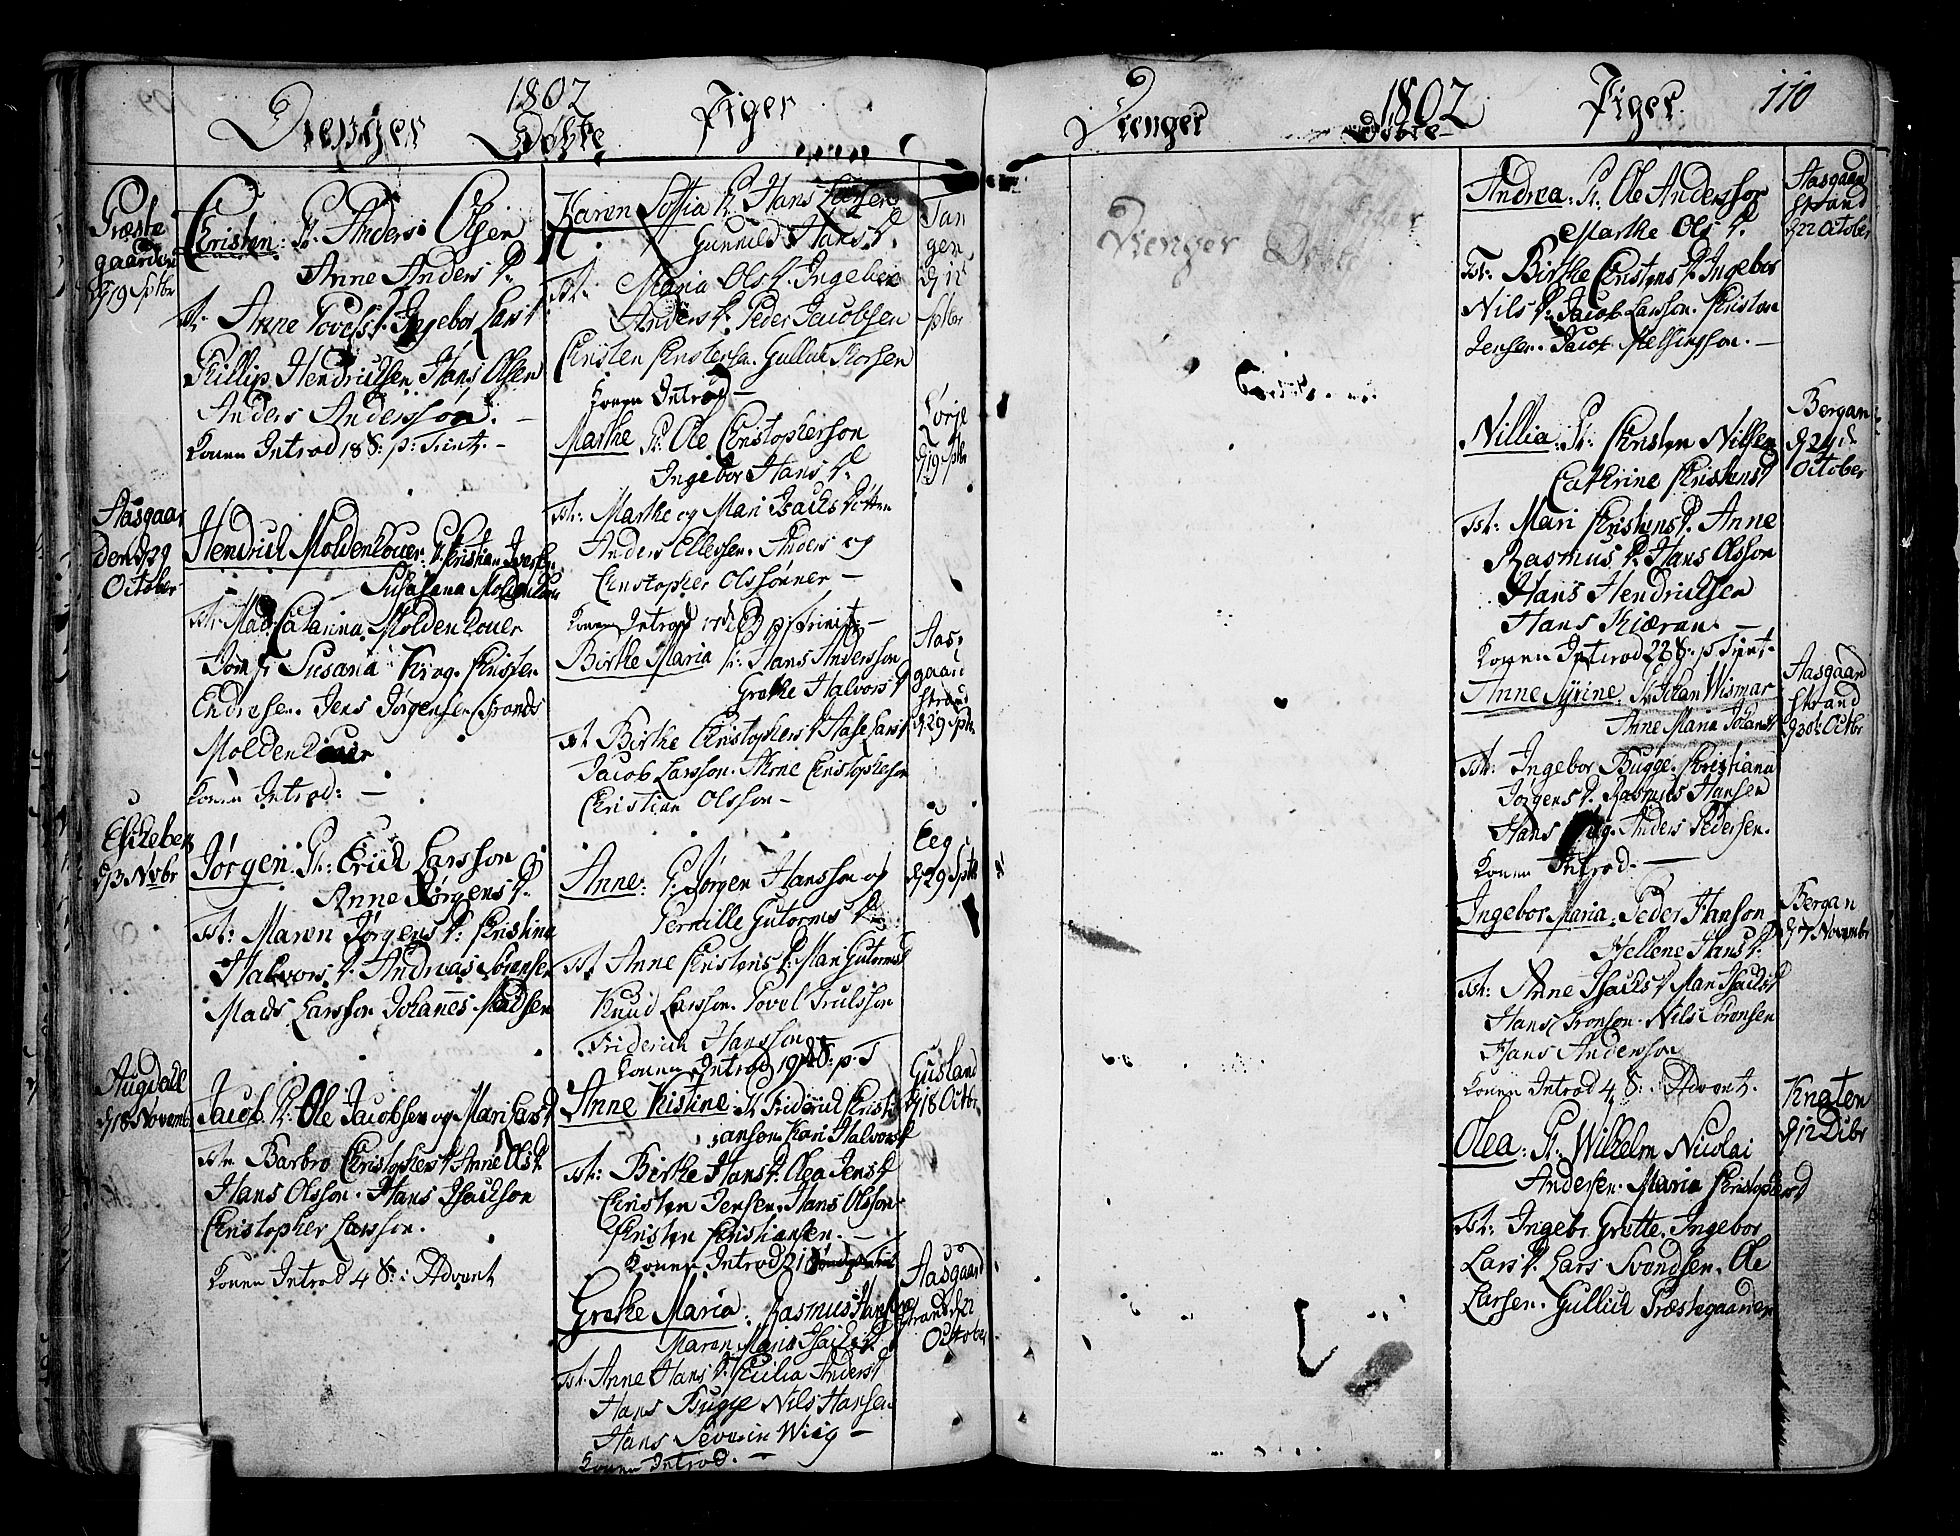 1802
Drenger Døbte Piger
Præste
gaarden
d 19 Sptbr
Christen: F. Anders Olsen
Anne Anders D.
Tst. Anne Povels D. Ingebor Lars D
Phillip Hendrichsen Hans Olsen
Anders Anderssøn. -
Konen Introd 18 S: p: Trinit. -
Aasgaar
den d 29
October
Hendrich Moldenhouer F. Christian Iversen
Susahana Moldenhouer
Tst. Mad. Catarina Moldenhouer
Jomfr Susana Krog. Christen
Endresen. Jens Jørgensen
Moldenhouer
Konen Introd: -
Eskeben
d 3 Novbr
Jørgen. F: Erich Larsson
Anne Jørgens D.
Tst: Maren Jørgens D: Christina
Halvors D. Andreas Sørensen
Mads Larsson Johannes Madsen
Augedahl
d 18 Novemb
Jacob. F. Ole Jacobsen og Mari Lars D
Tst. Barbro Christophers D Anne Ols D.
Hans Olsson. Hans Isachson
Christopher Larsson.
Konen Introd 4 S: i Advent
Karen Soffia F. Hans
Gunnild Hans D.
Tst. Maria Ols D. Ingebor
Anders D. Peder Jacobsen
Christen Christensen. Gulluk Torsen
Konen Introd -
Tan
gen
d 12
Sptbr
Marthe F. Ole Christopherson
Ingebor Hans D.
Tst: Marthe og Mari Isachs Døttre
Anders Ellefsen. Anders og
Christopher Olssønner -
Konen Introd p: Trinit: -
Borje
d 19 Sptbr
Birthe Maria F. Hans Anderssøn
Grethe Halvors D
Tst Birthe Christophers D Aase Lars D
Jacob Larsson. Arne Christopherson
Christian Olsson -
Aas
gaard
strand
d 29 Sptbr
Anne: F. Jørgen Hansson og
Pernille Gutorms D.
Tst Anne Christens D. Mari Gutorms D
Knud Larsson. Povel Trulsson
Friderich Hansson
Konen Introd 19 S: p. T
Eeg
d 29 Sptbr
Anne Kistine F Friderich Christi
ansen. Kari Halvors D
Tst: Birthe Hans D. Olea Jens D
Christen Jensen. Hans Olsson
Christen Christiansen. -
Konen Introd 21
Gusland
d 18 Octbr
Grethe Maria: Rasmus Hansen
Maren Maria Isachs D
Tst. Anne Hans D. Cicilia Anders D
Hans Bugge Nils Hansen
Hans Severin Wiig -
Konen Introd. -
Aasgaard
strand d 22
October
1802
Drenger Døbte Piger 110
Drenger Døbte Piger
Andrea: F. Ole Anderssøn
Marthe Ols D.
Tst: Birthe Christens D. Ingebor
Nils D: Jacob Larsson. Christen
Jensen. Jacob -
Aasgaard
strand
d 22 October
Nillia: F: Christen Nilsen
Cathrine Christens D
Tst: Mari Christens D. Anne
Rasmus D. Hans Olsson
Hans Hendrichsen
Hans Kiæran. -
Konen Introd 22 S. p Trint -
Bergan
d 24
October
Anne Syrine: F. Johan Wismar
Anne Maria Johans D
Tst: Ingebor Bugge. Christiana
Jørgens D. Rasmus Hansen
Hans Anders Pedersen.
Konen Introd. -
Aasgaard
strand
d 30 Octbr
Ingebor Maria. Peder Hanson
Hellene Hans D.
Tst: Anne Isachs D Mari Isachs D
Hans Tronson. Nils Sørensen
Hans Andersson
Konen Introd 4 S: i Advent.
Bergan
d 7 Novembr
Olea: F. Wilhelm Nicolai
Andersen. Maria Christophers D
Tst: Ingebr Grotte. Ingebor
Lars D. Lars Svendsen. Ole
Larsen. Gulluk Præstegaarden
Knaten
d 12 Dibr